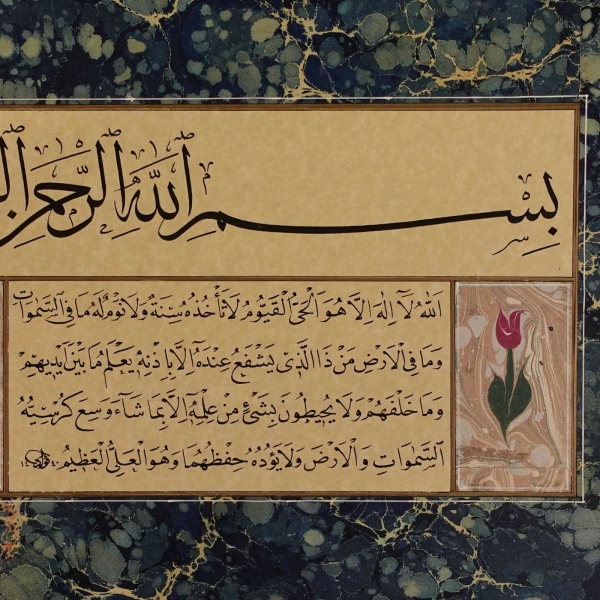 بِسْمِ اللّٰهِ الرَّحْمٰنِ
اَللّٰهُ لَٓا اِلٰهَ اِلَّا هُوَ اَلْحَىُّ الْقَيُّومُ لَا تَأْخُذُهُ سِنَةٌ وَلَا نَوْمٌ لَهُ مَا فِى السَّمٰوَاتِ
وَمَا فِى الْاَرْضِ مَنْ ذَا الَّذٖى يَشْفَعُ عِنْدَهُٓ اِلَّا بِاِذْنِهٖ يَعْلَمُ مَا بَيْنَ اَيْدٖيهِمْ
وَمَا خَلْفَهُمْ وَلَا يُحٖيطُونَ بِشَىْءٍ مِنْ عِلْمِهٖٓ اِلَّا بِمَا شَٓاءَ وَسِعَ كُرْسِيُّهُ
السَّمٰوَاتِ وَالْاَرْضَ وَلَا يَؤُدُهُ حِفْظُهُمَا وَهُوَ الْعَلِىُّ الْعَظٖيمُ